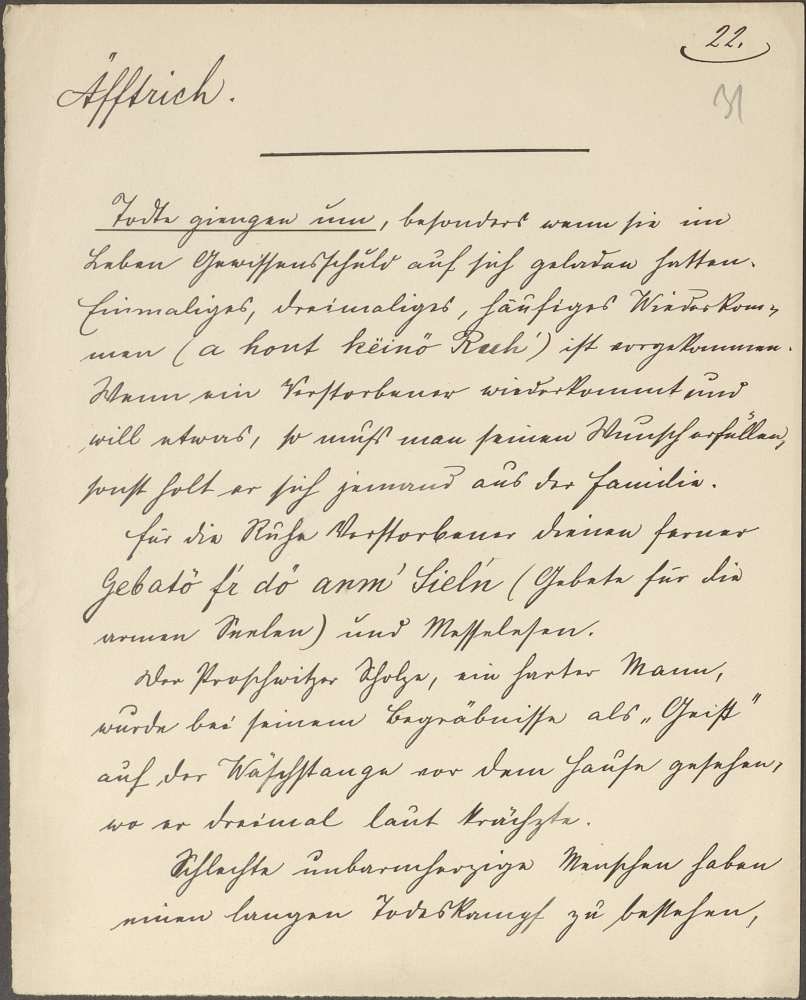 22.
31
Äfftrich.
Todte giengen um, besonders wenn sie im
Leben Gewissensschuld auf sich geladen hatten.
Einmaliges, dreimaliges, häufiges Wiederkom-
men (a hont këinö Ruh') ist vorgekommen.
Wenn ein Verstorbener wiederkommt und
will etwas, so muß man seinen Wunsch erfüllen,
sonst holt er sich jemand aus der Familie.
Für die Ruhe Verstorbener dienen ferner
Gebatö fr dö anm' Sieln (Gebete für die
armen Seelen) und Messelesen.
Der Proschwitzer Scholze, ein harter Mann,
wurde bei seinem Begräbnisse als „Geist"
auf der Wäschstange vor dem Hause gesehen,
wo er dreimal laut krächzte.
Schlechte unbarmherzige Menschen haben
einen langen Todeskampf zu bestehen,